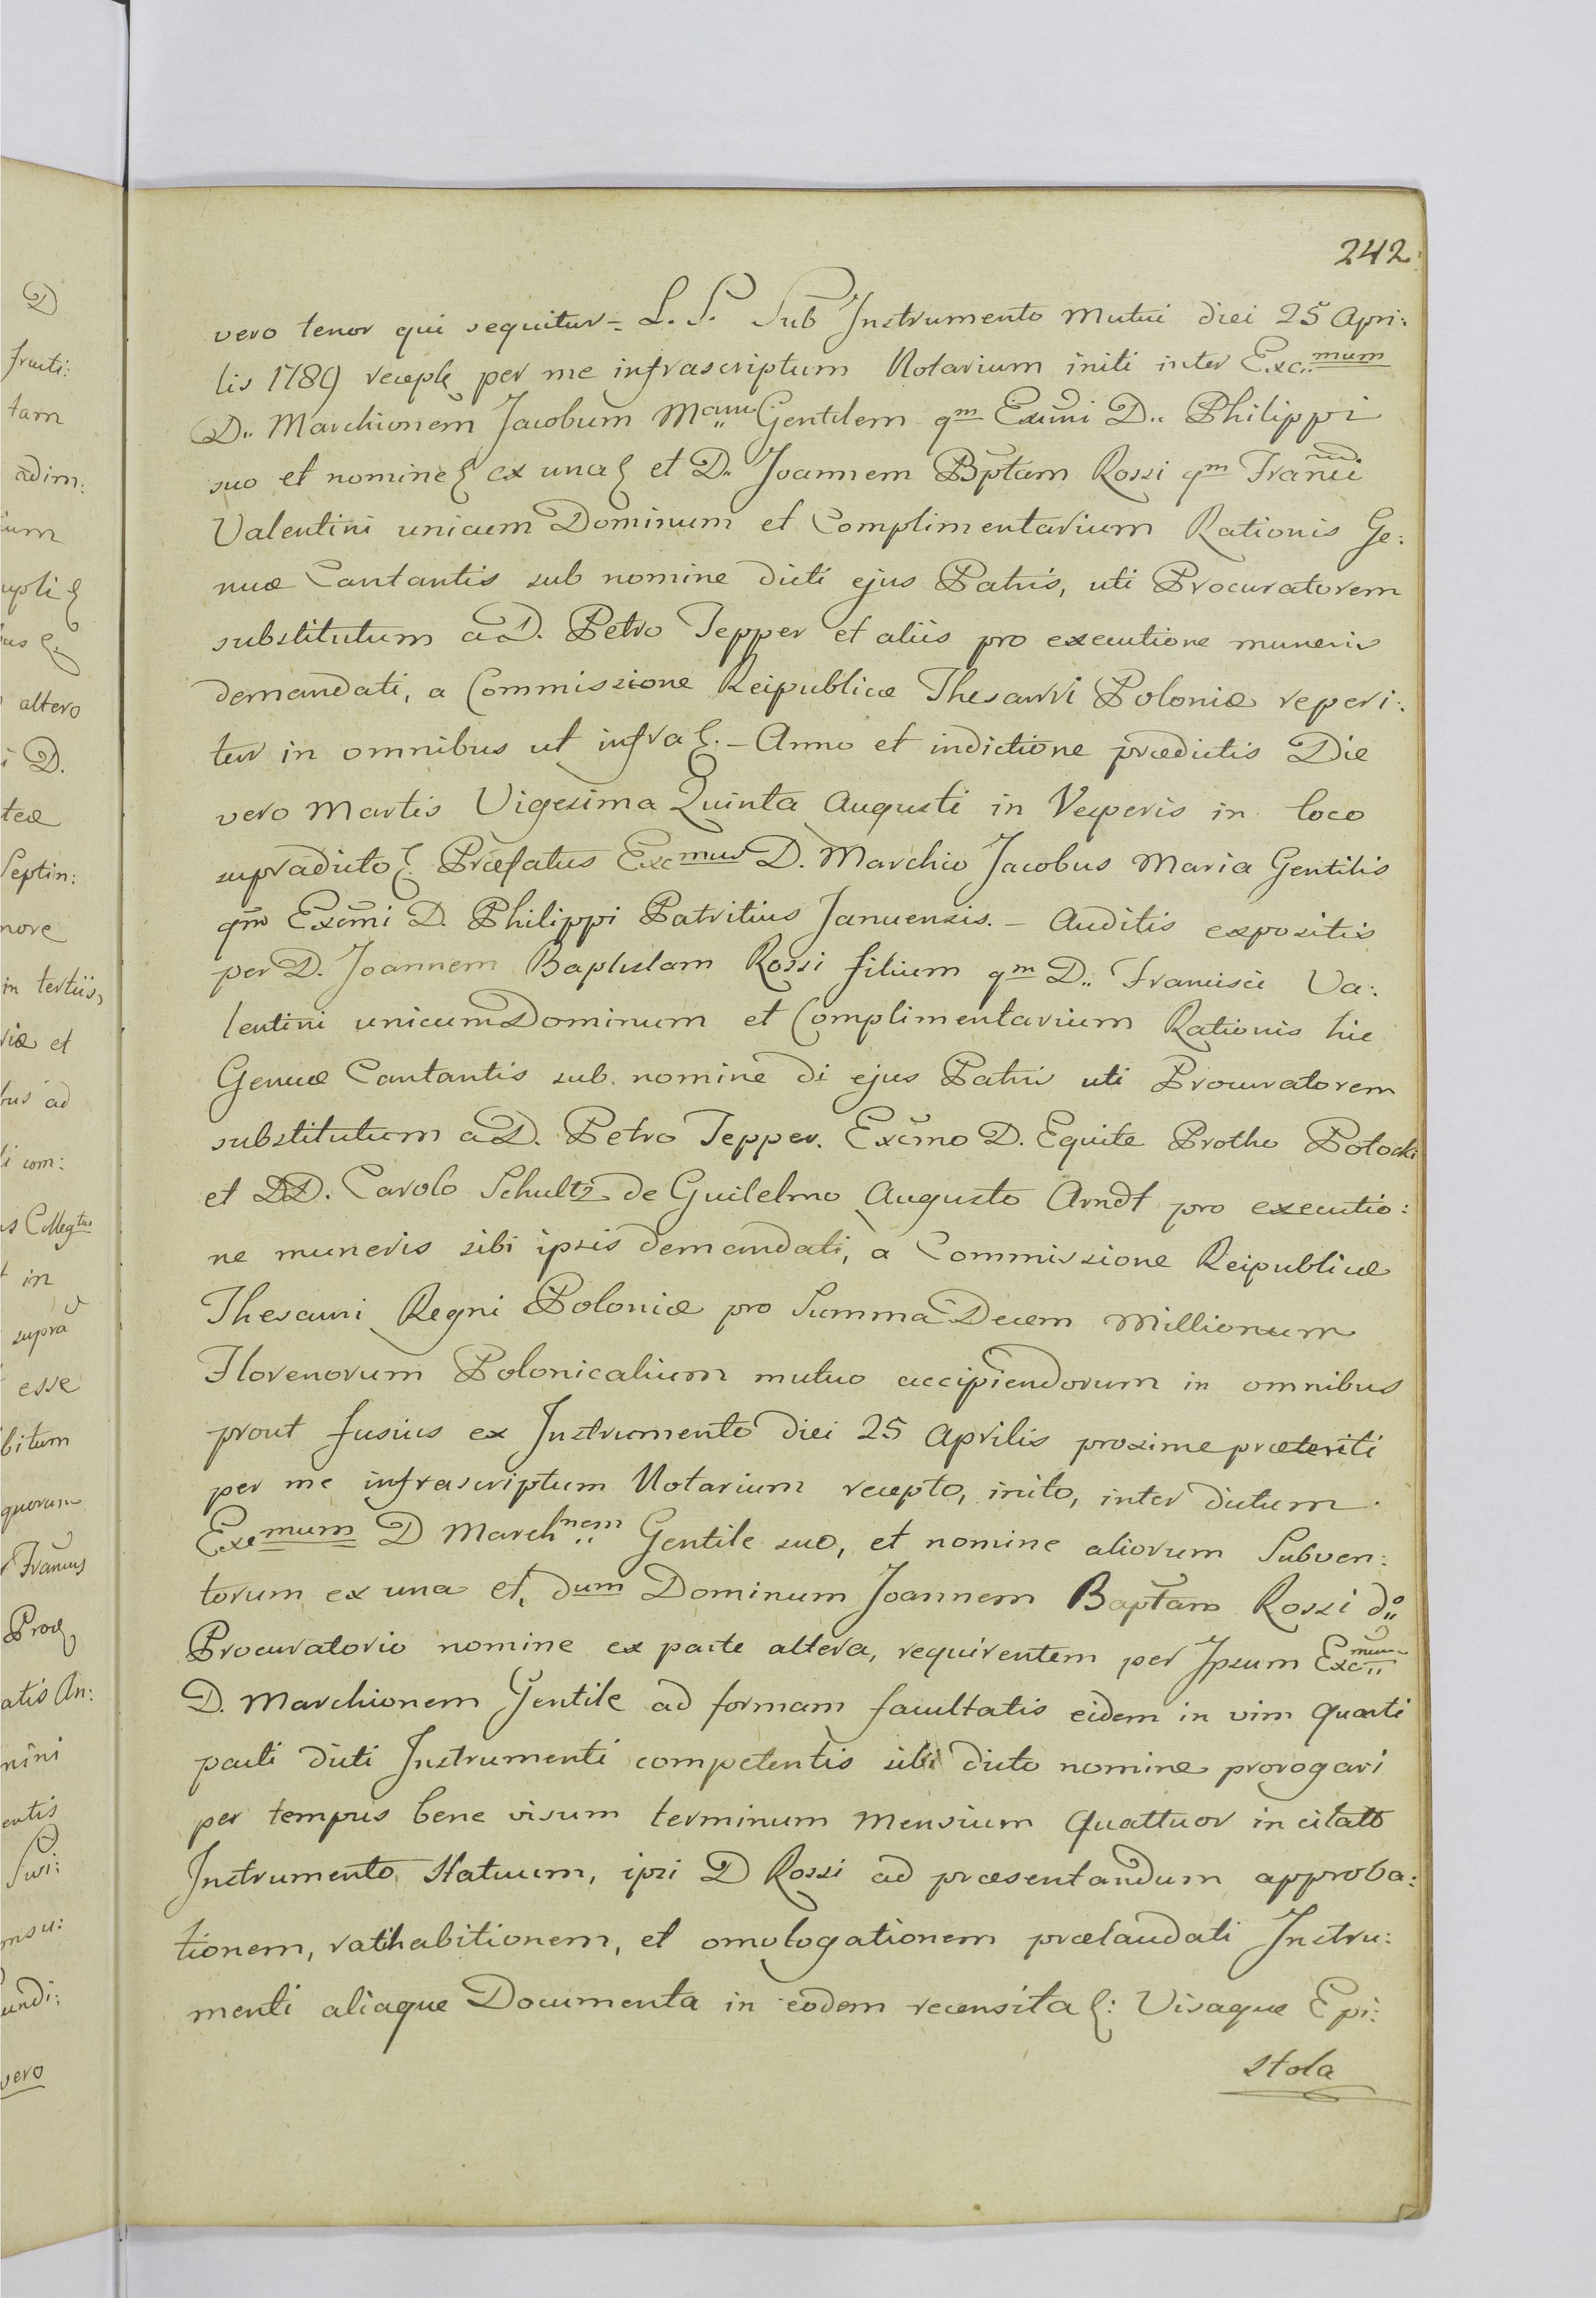 242.
vero tenor qui sequitur = L. S. Sub Instrumento Mutui diei 25 Apri:
lis 1789 per me infrascriptum Notarium initi inter Exc:mum
D.. Marchionem Jacobum Mam Gentilem qm Excmi D.. Philippi
suo et nomine ex una et D. Joannem Bptam Rossi qm Franci
Valentini unicum Dominum et Complimentarium Rationis Ge:
nuæ Cantantis sub nomine dicti ejus Patris, uti Procuratorem
substitutum a D. Petro Tepper et aliis pro executione muneris
demandati, a Commissione Reipublicæ Thesauri Poloniæ reperi:
tur in omnibus ut infra. - Anno et indictione prædictis Die
vero Martis Vigesima Quinta Augusti in Vesperis in loco
supradicto. Præfatus Excmus D. Marchio Jacobus Maria Gentilis
qm Excmi D. Philippi Patritius Januensis. - Auditis expositis
per D. Joannem Baptistam Rossi filium qm D.. Francisci Va:
lentini unicum Dominum et Complimentarium Rationis hic
Genuæ Cantantis sub nomine di ejus Patris uti Procuratorem
substitutum a D. Petro Tepper. Excmo D. Equite Protho Potocki
et DD. Carolo Schultz de Guilelmo Augusto Arndt pro executio:
ne muneris sibi ipsis demandati, a Commissione Reipublicæ
Thesauri Regni Poloniæ pro Summa Decem Millionum
Florenorum Polonicalium mutuo accipiendorum in omnibus
prout fusius ex Instrumento diei 25 Aprilis proxime præteriti
per me infrascriptum Notarium recepto, inito, inter dictum
Excmum D Marchnem Gentile suo, et nomine aliorum Subven:
torum ex una et, dum Dominum Joannem Baptam Rossi do
Procuratorio nomine ex parte altera, requirentem per Ipsum Excmum
D. Marchionem Gentile ad formam facultatis eidem in vim quarti
pacti dicti Instrumenti competentis sibi dicto nomine prorogari
per tempus bene visum terminum Mensium Quattuor in citato
Instrumento Statuum, ipsi D Rossi ad præsentandum approba:
tionem, ratihabitionem, et omologationem prælaudati Instru:
menti aliaque Documenta in eodem recensita: Visaque Epi:
stola
D
fructi:
tam
adim:
altero
D.
Septin:
in tertiis,
et
ad
com:
in
supra
esse
quorum
vero